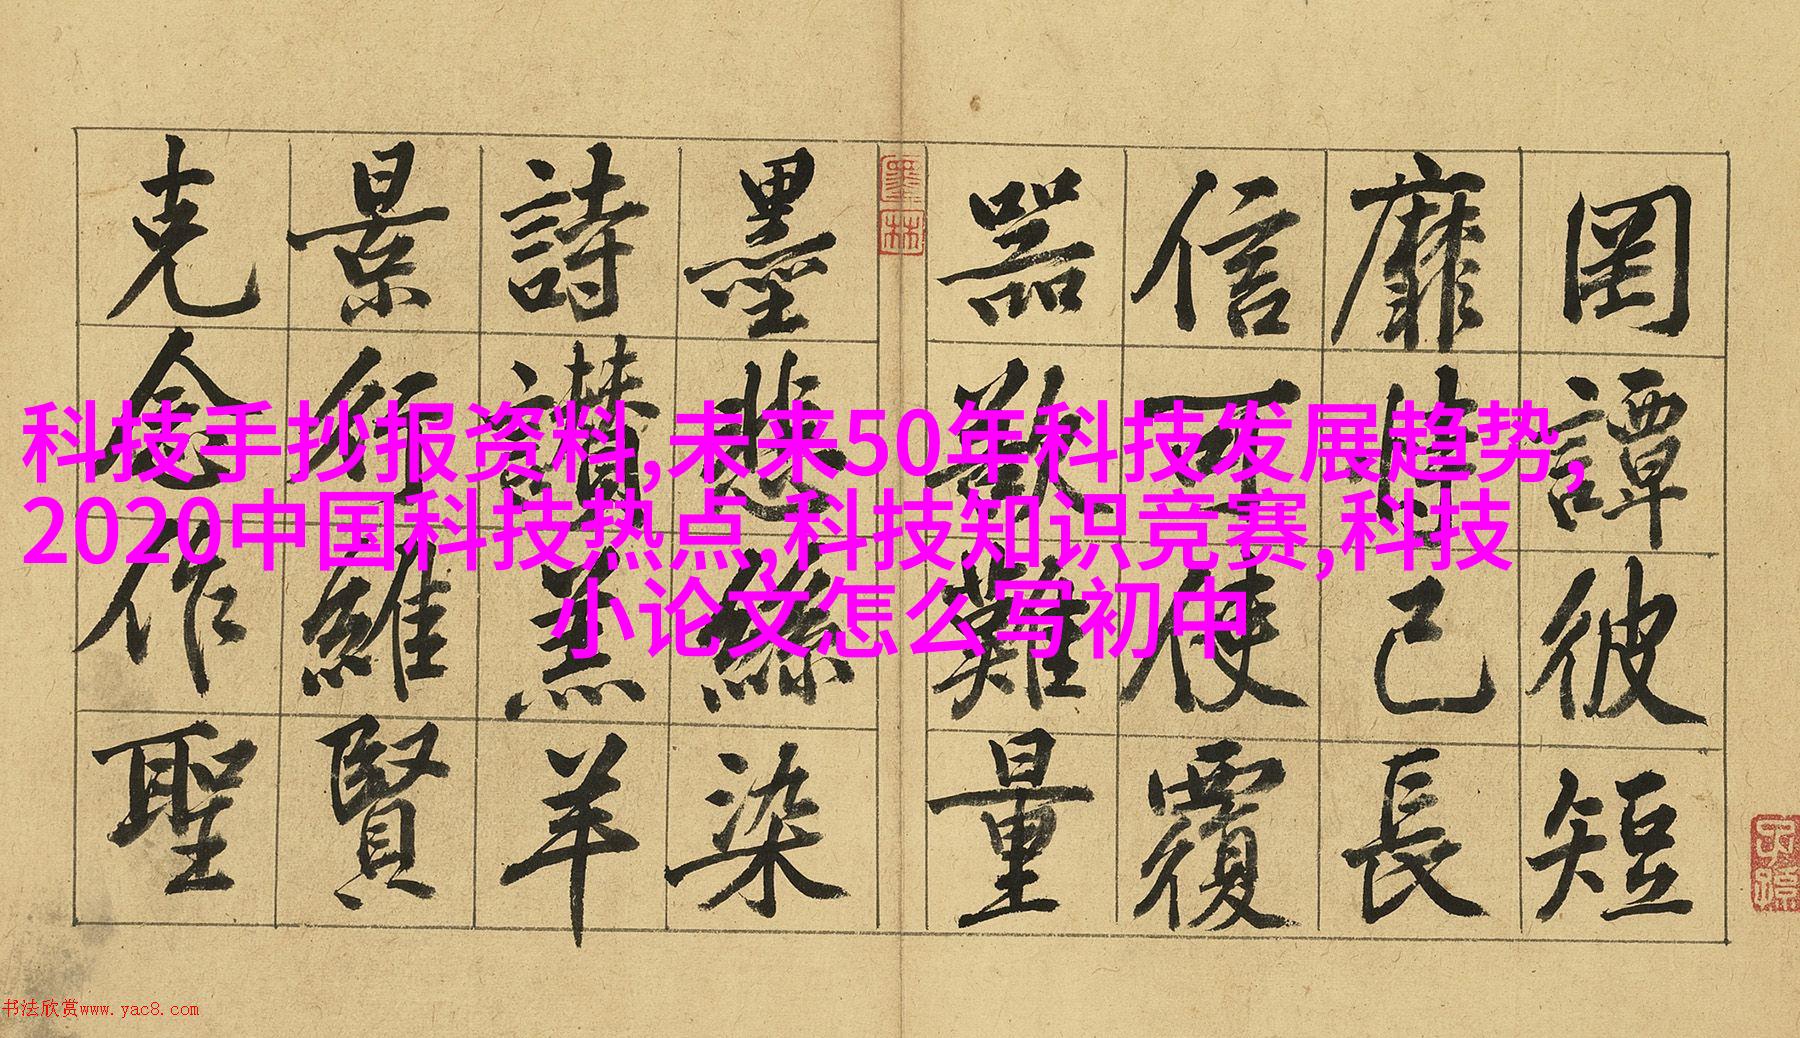 罔譚彼短
靡恃己長
信可使覆
器欲難量
墨悲絲染
詩讚羔羊
景行維賢
克念作聖
墨林
科技手抄报资料,未来50年科技发展趋势,
2020中国科技热点,科技知识竞赛,科技
小论文怎么写初中
书法欣赏www.yac8.com